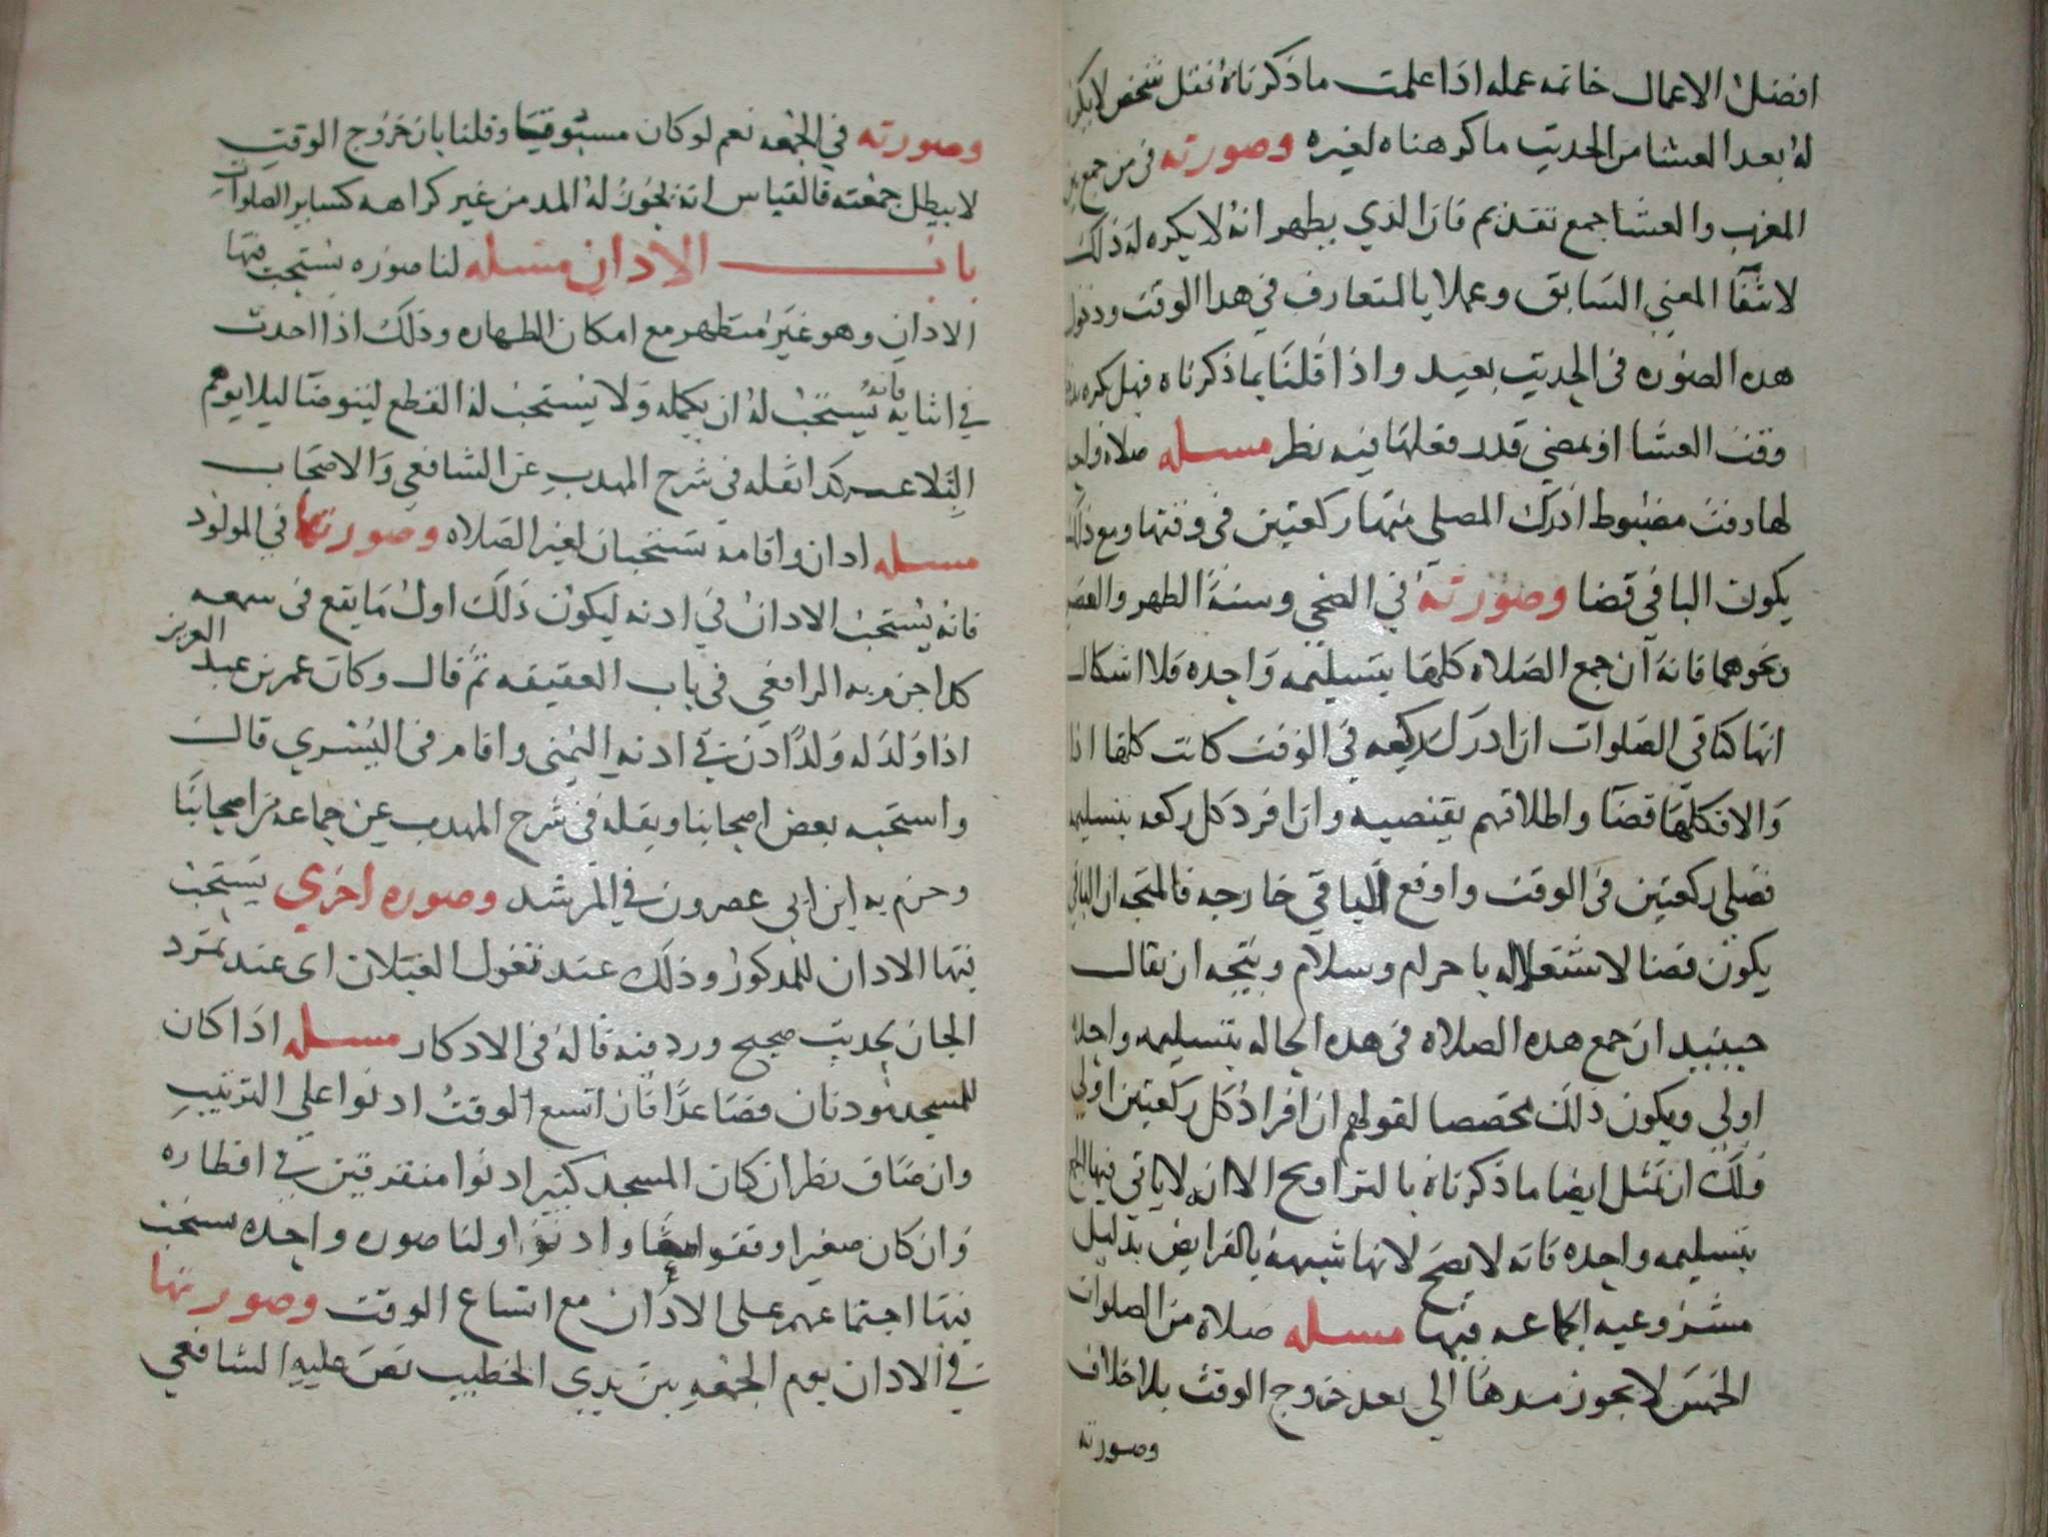 افضل الاعمال خاتمه عمله اذا علمت ماذكرناه فقل شخص لا يكره
له بعد العشا من الحديث ما كرهناه لغيره وصورته في من جمع بين
المغرب والعشا جمع تقديم فان الذي يظهر انه لا يكره له ذلك
لانتفا المعنى السابق وعملا بالمتعارف في هدا الوقت ودخول
هده الصوره في الحديث بعيد واذا قلنا بماذكرناه فهل يكره
وقت العشا او بمضي قدر فعلها فيه نظر مسله صلاة
لها وقت مضبوط ادرك المصلي منها ركعتين في وقتها ومع ذلك
يكون الباقي قضا وصورته في الضحى وسنة الظهر والعصر
ونحوهما فانه ان جمع الصلاه كلها بتسليمه واحده فلا اشكال
انها كباقي الصلوات ان ادرك ركعه في الوقت كانت كلها ادا
والا فكلها قضا واطلاقهم يقتضيه وان افرد كل ركعه بتسليمه
فصلى ركعتين في الوقت واوقع الباقي خارجه فالمتجه ان الباقي
يكون قضا لاشتغاله باحرام وسلام ويتجه ان يقال
حينيد ان جمع هده الصلاه في هده الحاله بتسليمه واحده
اولى ويكون ذلك مخصصا لقولهم ان افراد كل ركعتين اولى
فلك ان تمثل ايضا ماذكرناه بالتراويح الا انه لا ياتي فيها الجمع
بتسليمه واحده فانه لا يصح لانها شبيهة بالفرايض بدليل
مشروعيه الجماعه فيها مسله صلاة من الصلوات
الخمس لا يجوز مدها الى بعد خروج الوقت بلا خلاف
وصورته
وصورته في الجمعه نعم لو كان مسبوقا وقلنا بان خروج الوقت
لا يبطل جمعته فالقياس انه يجوز له المد من غير كراهه كساير الصلوات
باب الادان مسله لنا صوره يستحب فيها
الادان وهو غير متطهر مع امكان الطهاره وذلك اذا احدث
في اثنايه فانه يستحب له ان يكمله ولا يستحب له القطع ليتوضا ليلا يوهم
التلاعب كدا نقله في شرح المهدب عن الشافعي والاصحاب
مسله ادان واقامه يستحبان لغير الصلاه وصورتها في المولود
فانه يستحب الادان في ادنه ليكون ذلك اول ما يقع في سمعه
كدا جزم به الرافعي في باب العقيقه ثم قال وكان عمر بن عبد العزيز
اذا ولد له ولدا ادن في ادنه اليمنى واقام في اليسرى قال
واستحبه بعض اصحابنا ونقله في شرح المهدب عن جماعه من اصحابنا
وجزم به ابن ابي عصرون في المرشد وصوره اخري يستحب
فيها الادان للمدكور وذلك عند تغول الغيلان اى عند تمرد
الجان لحديث صحيح ورد فيه قاله في الادكار مسله اذا كان
للمسجد مودنان فصاعدا فان اتسع الوقت ادنوا على الترتيب
وان ضاق نظر ان كان المسجد كبير ادنوا متفرقين في اقطاره
وان كان صغيرا وقفوا معا وادنوا ولنا صوره واحده يستحب
فيها اجتماعهم على الادان مع اتساع الوقت وصورتها
في الادان يوم الجمعه بين يدي الخطيب نص عليه الشافعي